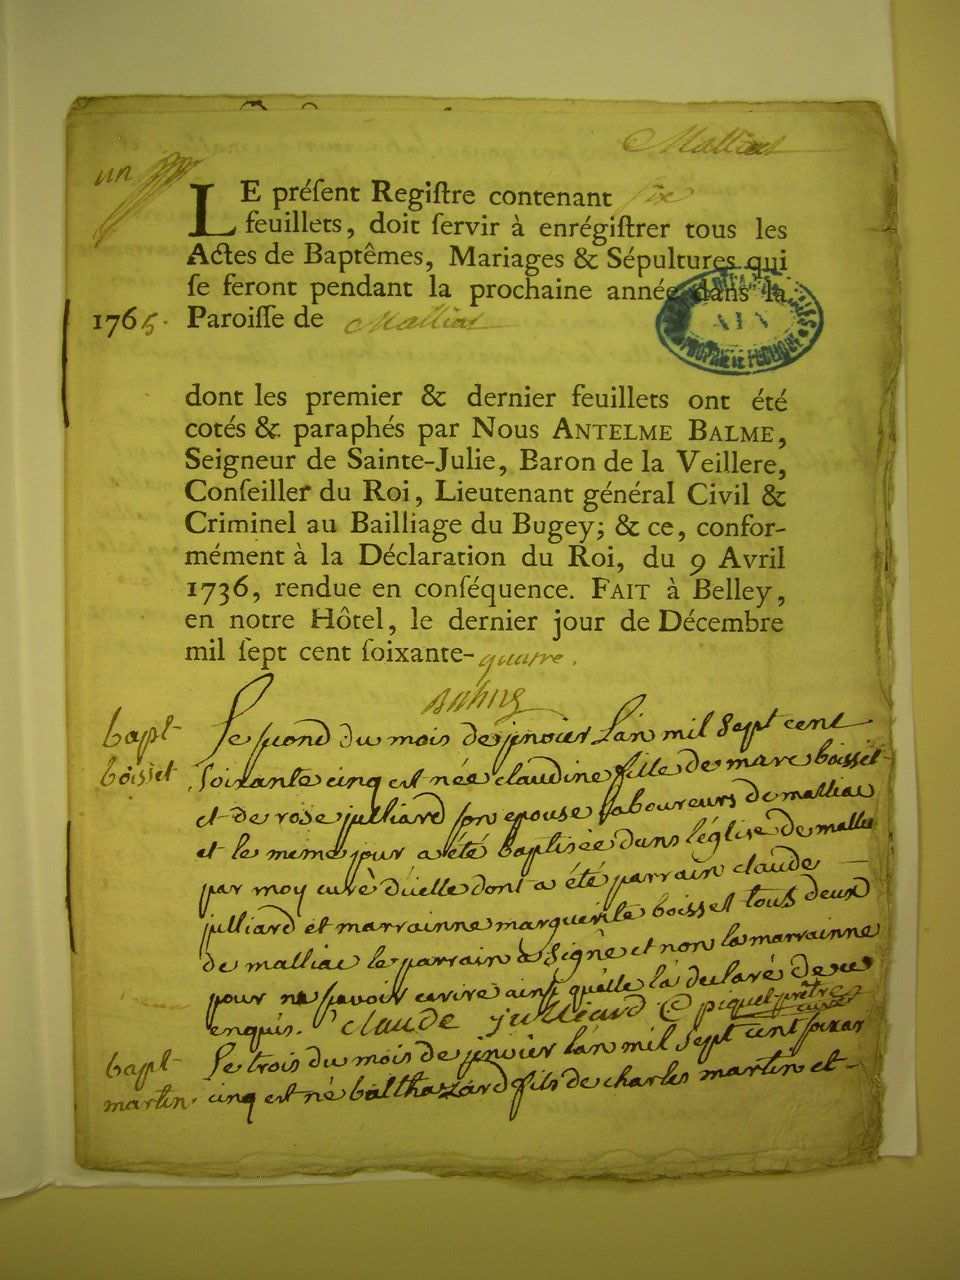 Malliat
un
LE préſent Regiſtre contenant six
feuillets, doit ſervir à enrégiſtrer tous les
Actes de Baptêmes, Mariages & Sépultures qui
ſe feront pendant la prochaine année dans la
1765. Paroiſſe de Malliat
dont les premier & dernier feuillets ont été
cotés & paraphés par Nous ANTELME BALME,
Seigneur de Sainte-Julie, Baron de la Veillere,
Conſeiller du Roi, Lieutenant général Civil &
Criminel au Bailliage du Bugey; & ce, confor-
mément à la Déclaration du Roi, du 9 Avril
1736, rendue en conſéquence. FAIT à Belley,
en notre Hôtel, le dernier jour de Décembre
mil ſept cent ſoixante-quatre.
bapt
boisset
Le second du mois de janvier L'an mil Sept cent
Soixante cinq est née claudine fille de marc boisset
et de rose julliard son epouse laboureurs de malliac
et le meme jour a été baptisée dans l'église de
par moy curé d'icelle dont a été parrain claude
julliard et marrainne marguerite boisset tous deux
de malliac le parrain a signé et non la marrainne
pour ne sçavoir ecrire ainsi qu'elle l'a declaré de ce
enquis. claude julliard piquet prêtre
curé
bapt
martin.
Le trois du mois de janvier l'an mil Sept cent soixan
cinq est né balthazard fils de charles martin et